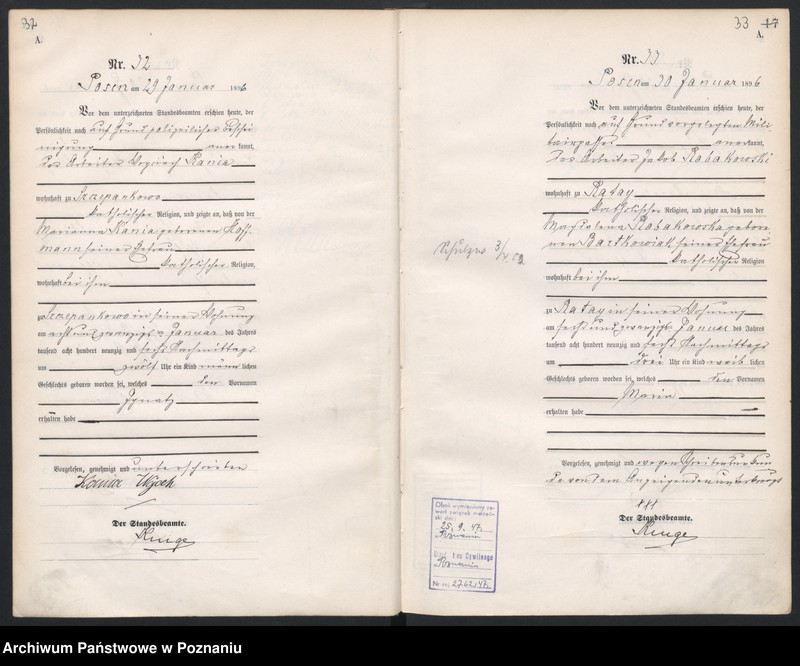 32
A.
Nr. 32
Posen am 29 Januar 1896
Vor dem unterzeichneten Standesbeamten erschien heute, der
Persönlichkeit nach auf Grund polizeilicher Beschei
nigung anerkannt,
der Arbeiter Wojciech Kania
wohnhaft zu Szczepankowo
katholischer Religion, und zeigte an, daß von der
Marianna Kania geborenen Hoff
mann seiner Ehefrau
katholischer Religion,
wohnhaft bei ihm
zu Szczepankowo in seiner Wohnung
am acht und zwanzigsten Januar des Jahres
tausend acht hundert neunzig und sechs Nachmittags
um zwölf Uhr ein Kind männlichen
Geschlechts geboren worden sei, welches den Vornamen
Ignatz
erhalten habe
Vorgelesen, genehmigt und unterschrieben
Kania
Der Standesbeamte.
33 17
A.
Nr. 33
Posen am 30 Januar 1896
Vor dem unterzeichneten Standesbeamten erschien heute, der
Persönlichkeit nach auf Grund vorgelegten Mili
tairpasses anerkannt,
der Arbeiter Jakob Ratakowski
wohnhaft zu Ratay
katholischer Religion, und zeigte an, daß von der
Magdalena Ratakowska gebore
nen Bartkowiak seiner Ehefrau
katholischer Religion
wohnhaft bei ihm
zu Ratay in seiner Wohnung
am sechs und zwanzigsten Januar des Jahres
tausend acht hundert neunzig und sechs Nachmittags
um drei Uhr ein Kind weiblichen
Geschlechts geboren worden sei, welches den Vornamen
Maria
erhalten habe
Vorgelesen, genehmigt und wegen Schreibensunkun
de von dem Anzeigenden unterkreuzt
+++
Der Standesbeamte.
Obok wymieniony za-
warł związek małżeń-
ski dnia
25. 9. 47.
Poznaniu
Urząd Stan Cywilnego
Poznaniu
Nr rej 2762/47.
Archiwum Państwowe w Poznaniu